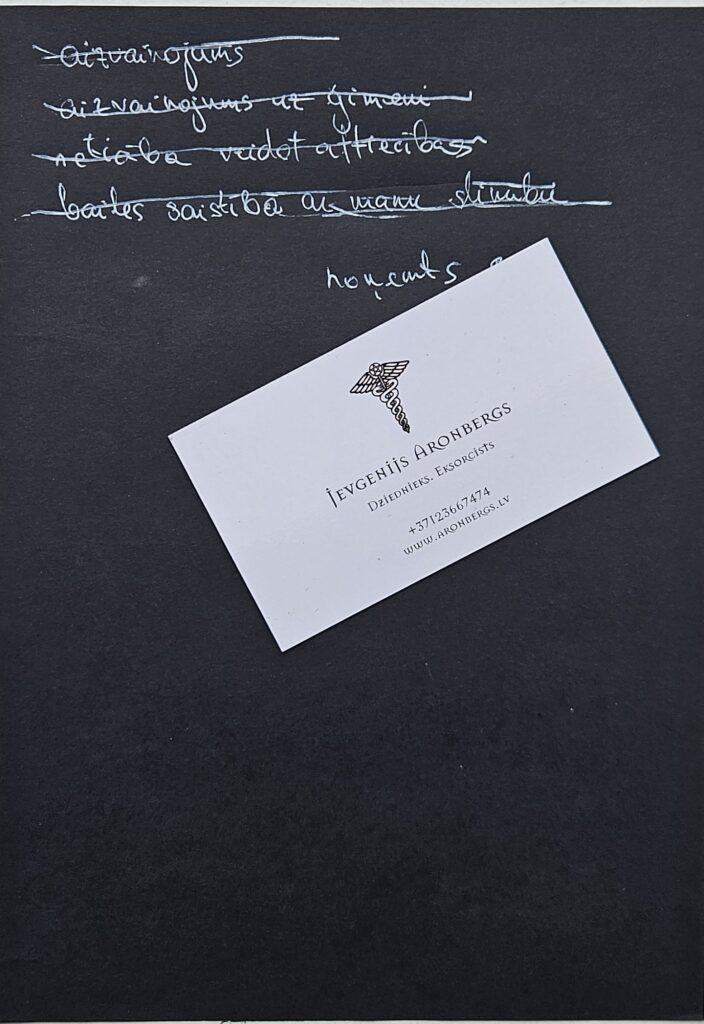 aizvainojums
aizvainojums uz ģimeni
nekība veidot attiecības
bailes saistībā ar manu slimību
noņemts
Jevgenijs Aronbergs
Dziednieks. Eksorcists
+37123667474
www.aronbergs.lv